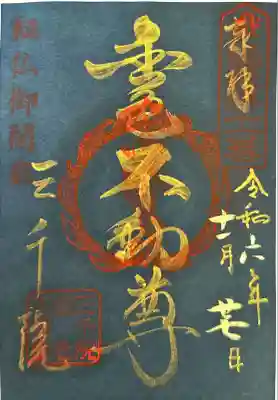 奉拝
令和六年
十一月廿七日
金色不動尊
秘仏御開扉
三千院